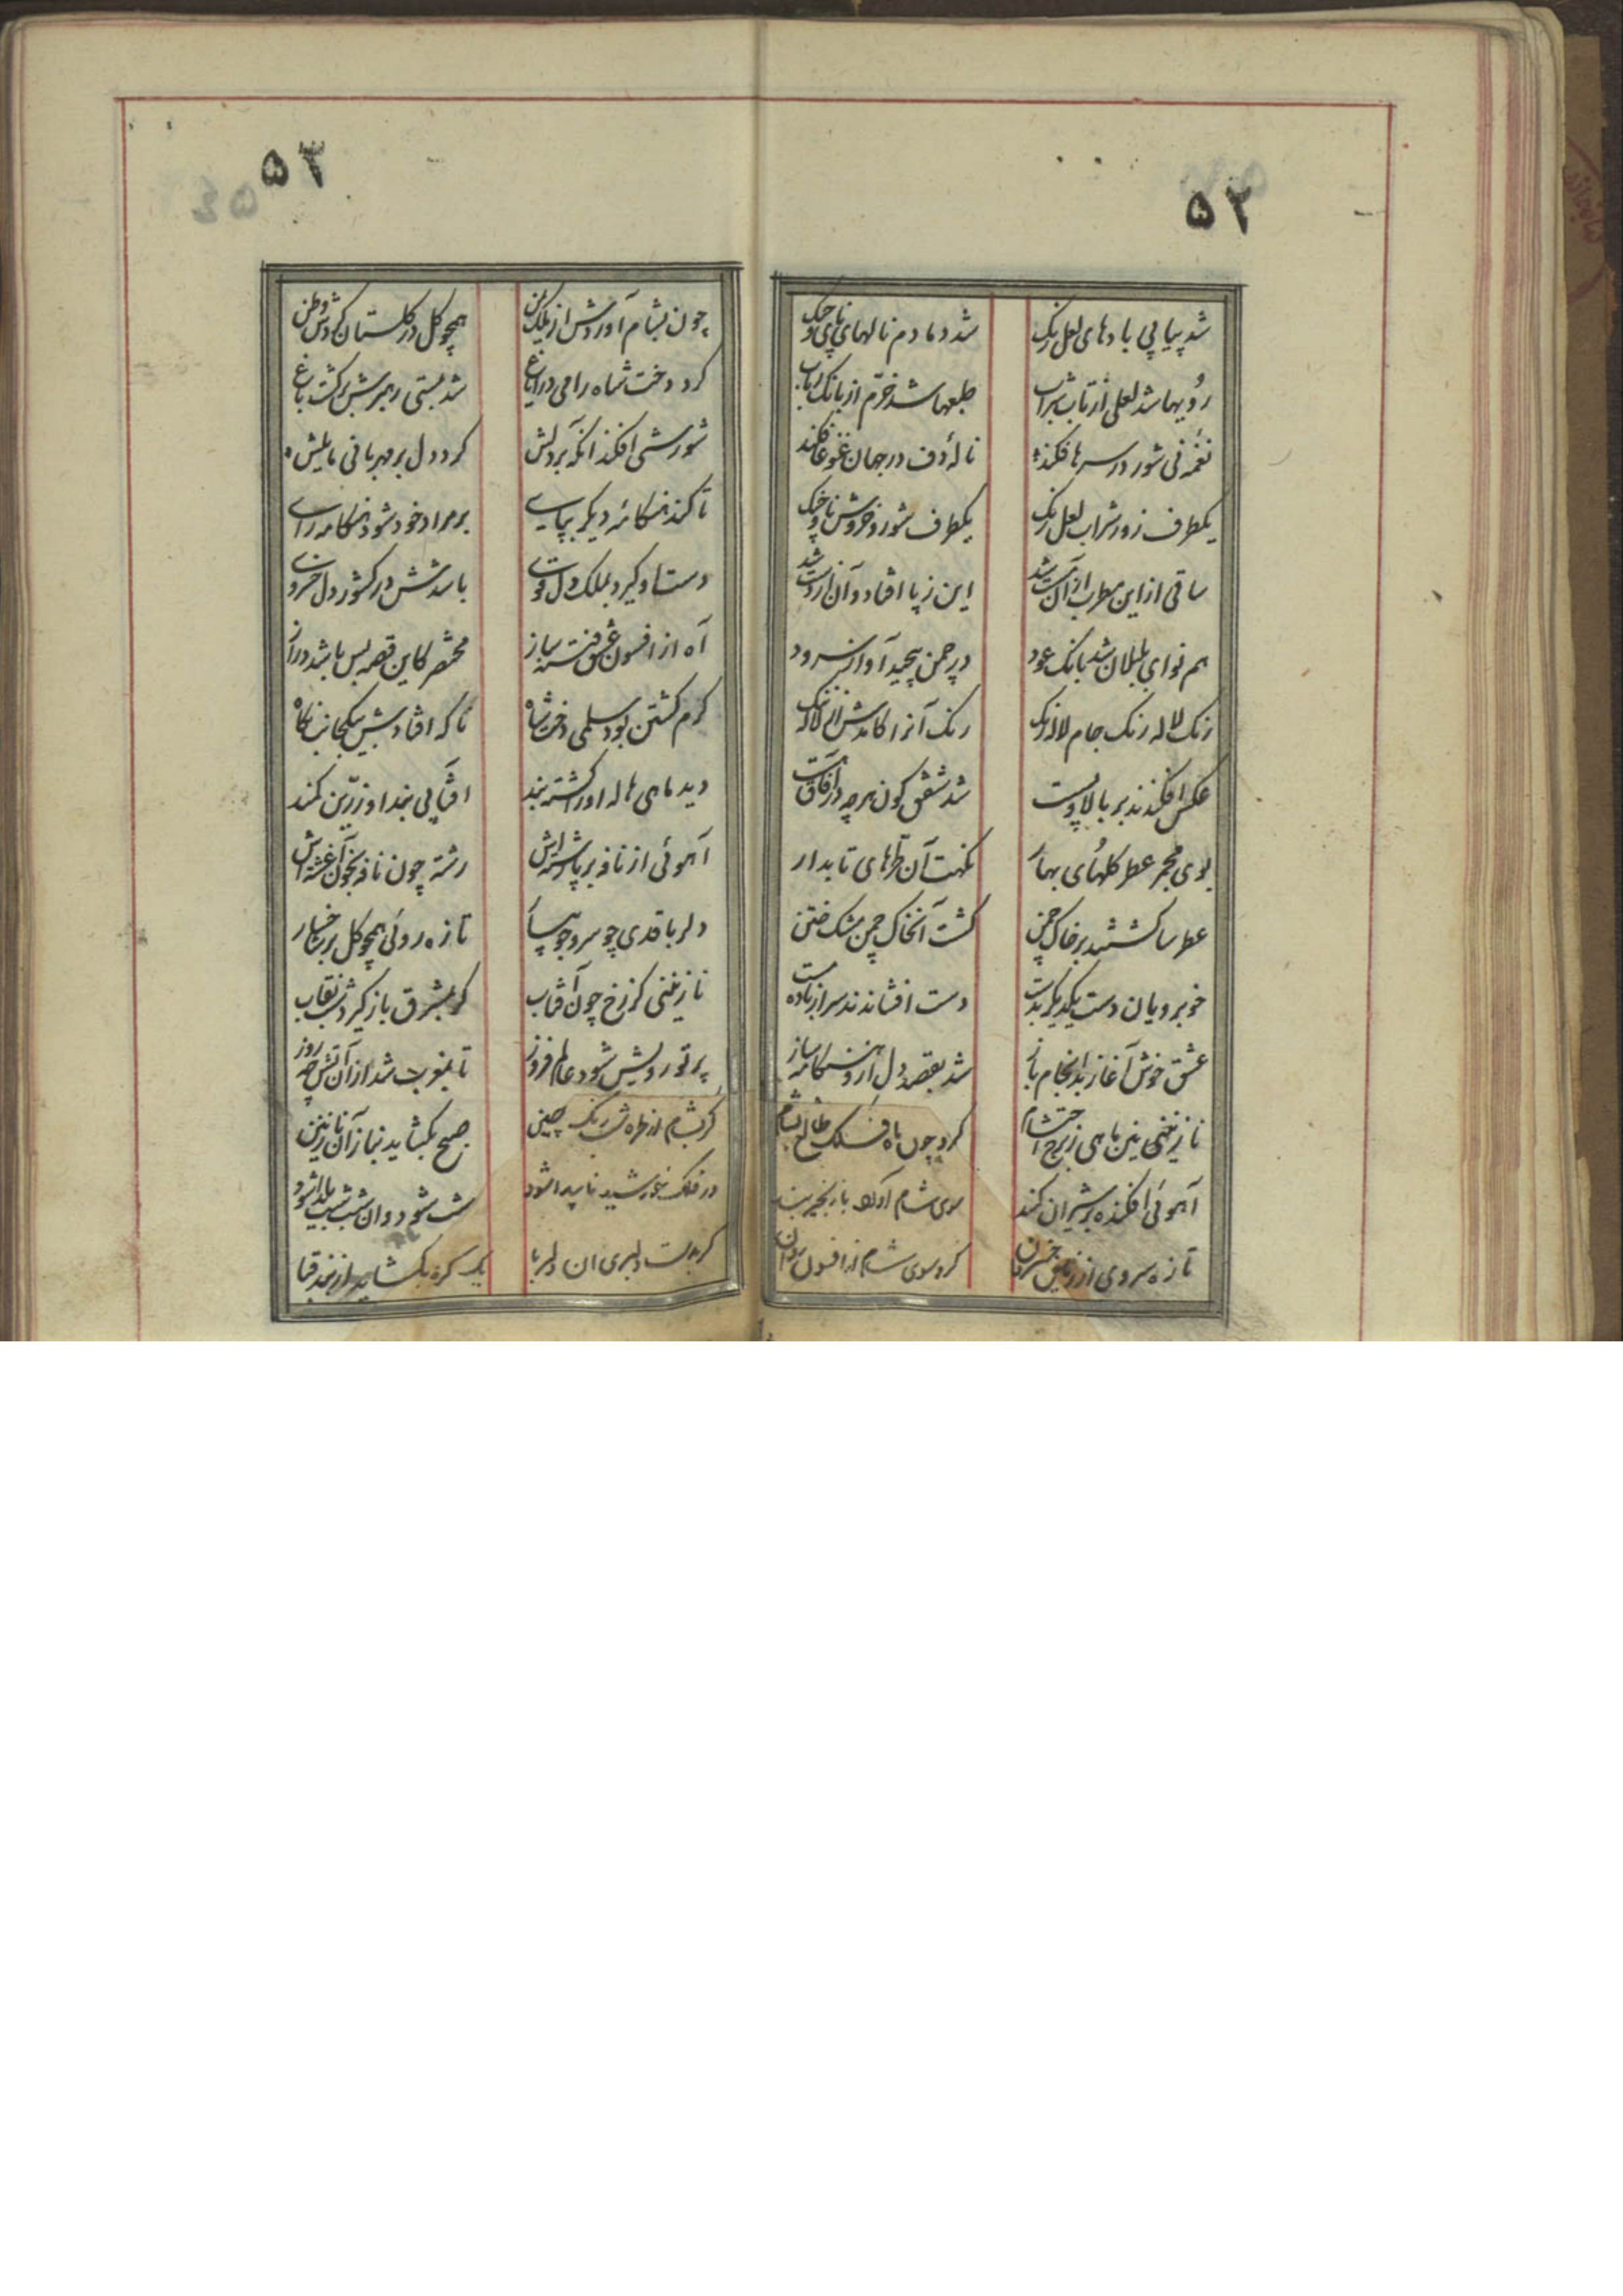 ۵۲
شد پیاپی بادهای لعل رنک شد دمادم نالهای نای و چنک
رویها شد لعلی از تاب شراب طبعها شد خرّم از بانک رباب
نغمه نی شور در سرها فکند نالهٔ دف در جهان غوغا فکند
یکطرف زور شراب لعل رنک یکطرف شور و خروش نای و چنک
ساقی از این مطرب از آن مست شد این ز پا افتاد و آن از دست شد
هم نوای بلبلان شد بانک عود در چمن پیچید آواز سرود
زنک لاله رنک جام لاله رنک رنک آنرا کامدش زان لاله ننک
عکس افکندند بر بالا و پست شد شفق کون هر چه در آفاق هست
بوی مجمر عطر کلهای بهار نکهت آن طرهای تابدار
عطرسا کشتند بر خاک چمن کشت آنخاک چمن مشک ختن
خوبرویان دست یکدیکر بدست دست افشاندند سر از باده مست
عشق خوش آغاز بد انجام باز شد بقصد دل از و هنکامه ساز
نازنینی بین ماهی ز برج احتشام کرد چون ماه فلک طالع بشام
آهوئی افکنده بر شیران کمند سوی شام آورد با زنجیر بند
تازه سروی از ریاض خسروان کرد سوی شام از افسون روان
۵۳
چون بشام آوردش از ملک یمن همچو کل در کلستان کردش وطن
کرد دخت شاه را می در ایاغ شد بمستی رهبرش بر کشت باغ
شورشی افکند انکه بر دلش کرد دل بر مهربانی مایلش
تا کند هنکامهٔ دیکر بپای بر مراد خود شود هنکامه رای
دست او کیرد بملک دل قوی باشدش در کشور دل خسروی
آه از افسون عشق فتنه ساز مختصر کاین قصه بس باشد دراز
کرم کشتن بود سلمی دخت شاه ناکه افتادش بیکجانب نکاه
دید ماهی هاله او را کشته بند افتابی بند او زرّین کمند
آهوئی از نافه بر پا رشته اش رشته چون نافه بخون آغشته اش
دلربا قدی چو سرو جویبار تازه روئی همچو کل بر شاخسار
نازنینی کز رخ چون آفتاب کر بمشرق باز کیرد شب نقاب
پرتو رویش شود عالم فروز تا بمغرب شد از آن آتش چه روز
کر بشام از طره شب رنک چینی صبح بکشاید بناز آن نازنین
در فلک خورشید ناپیدا شود شب شود و ان شب شب یلدا شود
کر بدست دلبری ان دلربا یک کره بکشاید از بند قبا